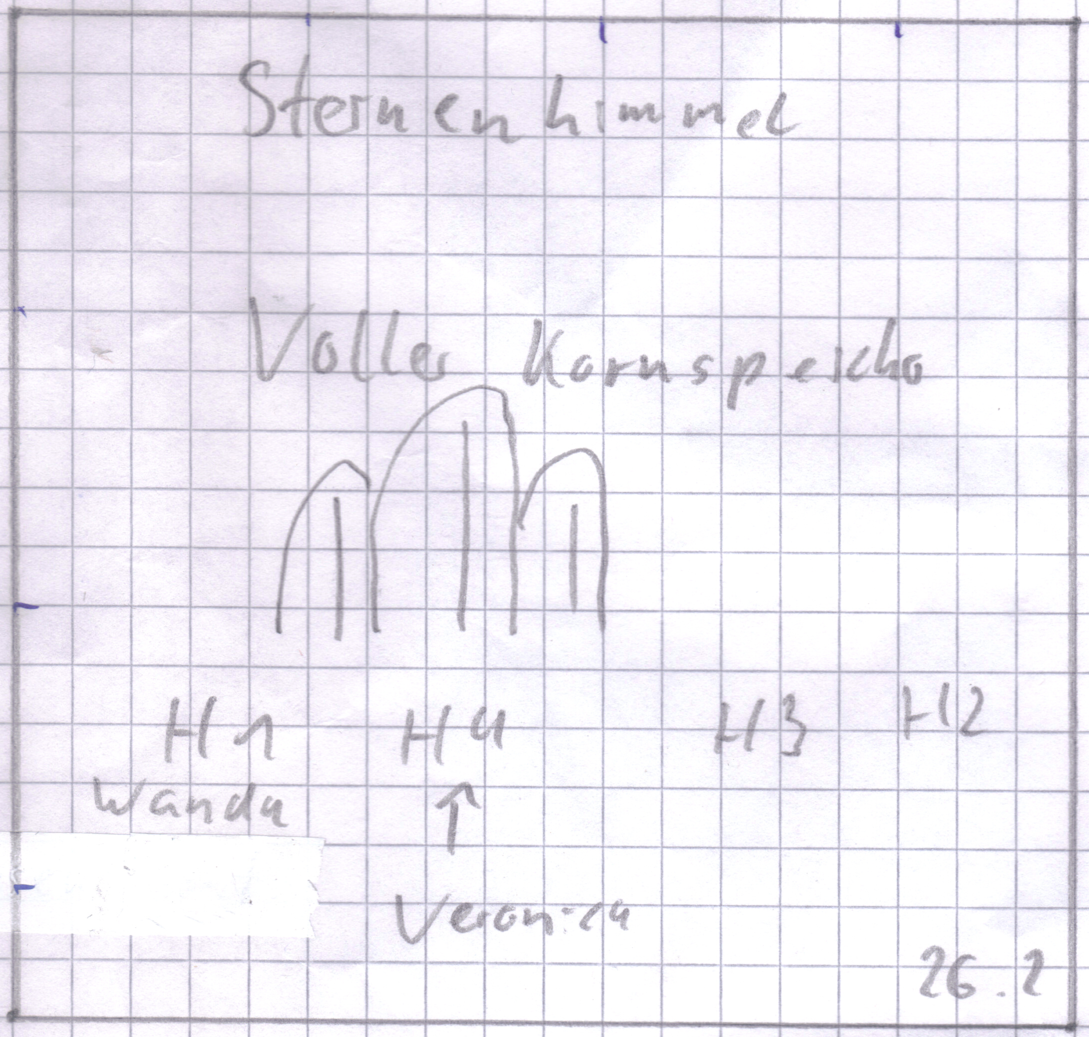 Sternenhimmel
Voller Kornspeicher
H1 H4 H3 H2
Wanda
Veronica
26.2